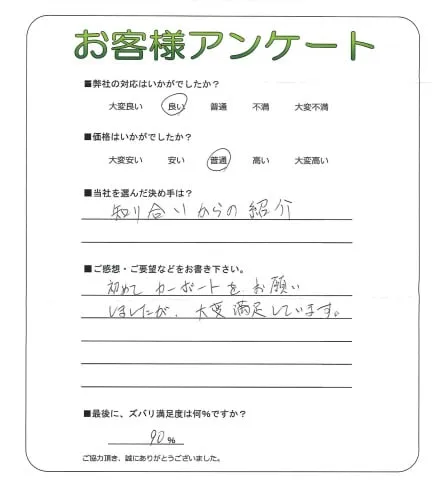 お客様アンケート
■弊社の対応はいかがでしたか？
大変良い 良い 普通 不満 大変不満
■価格はいかがでしたか？
大変安い 安い 普通 高い 大変高い
■当社を選んだ決め手は？
知り合いからの紹介
■ご感想・ご要望などをお書き下さい。
初めてカーポートをお願い
しましたが、大変満足しています。
■最後に、ズバリ満足度は何％ですか？
90％
ご協力頂き、誠にありがとうございました。